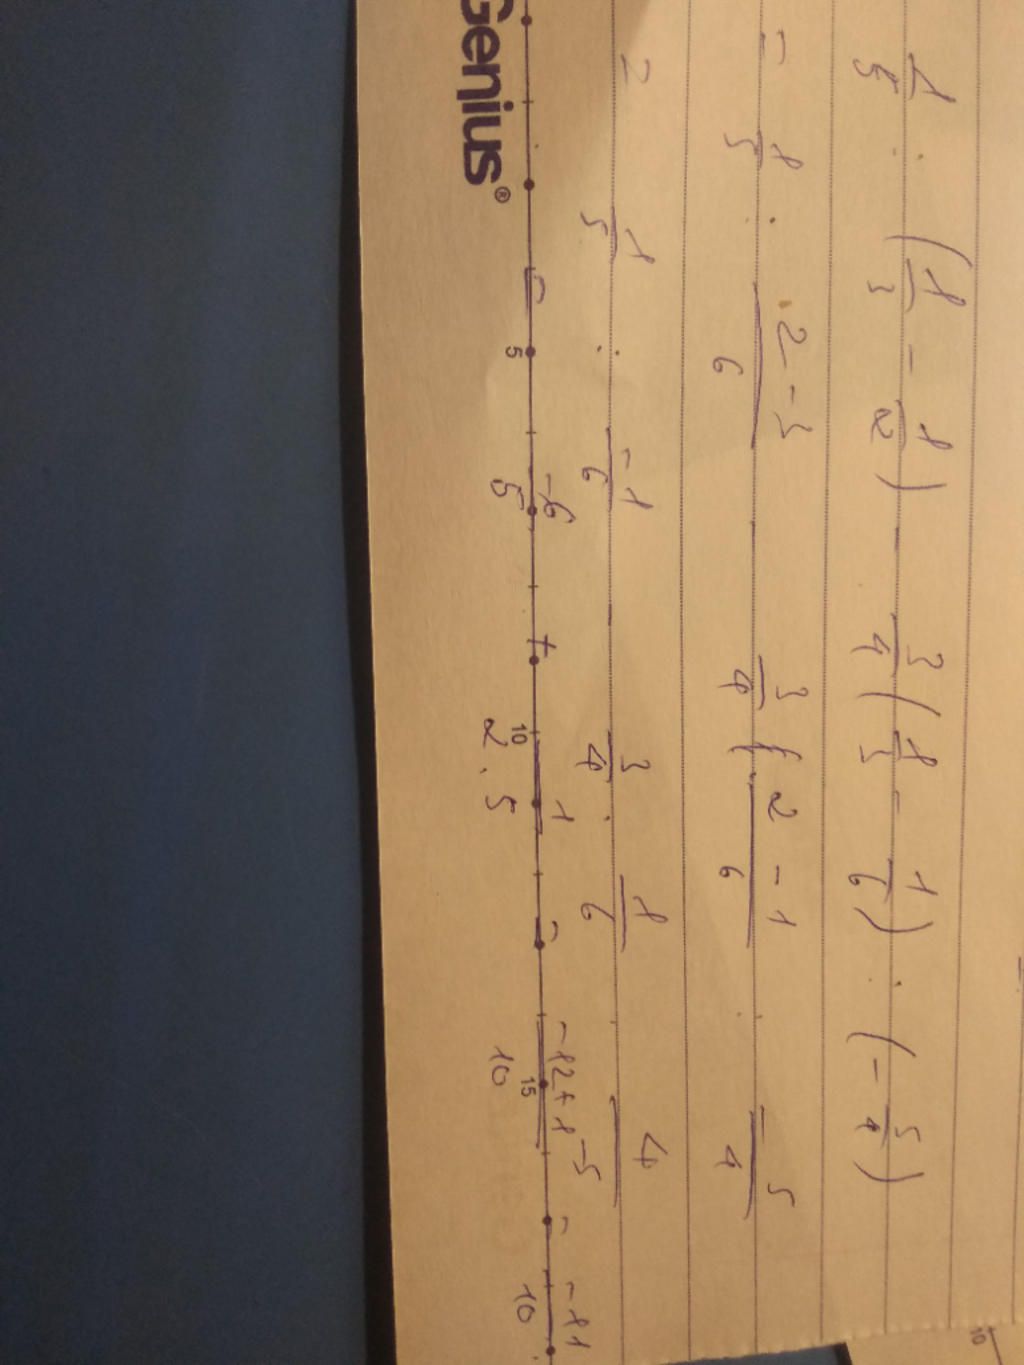 1/5 : (1/3 - 1/2) - 3/4 (1/3 - 1/6) : (- 5/4)
= 1/5 : 2 - 3/6 - 3/4 (2 - 1/6) : - 5/4
1/5 : -1/6 - 3/4 · 1/6 : 4/-5
= -6/5 + 1/2.5 = -12+1/10 = -11/10
5 10 15
Genius®
10